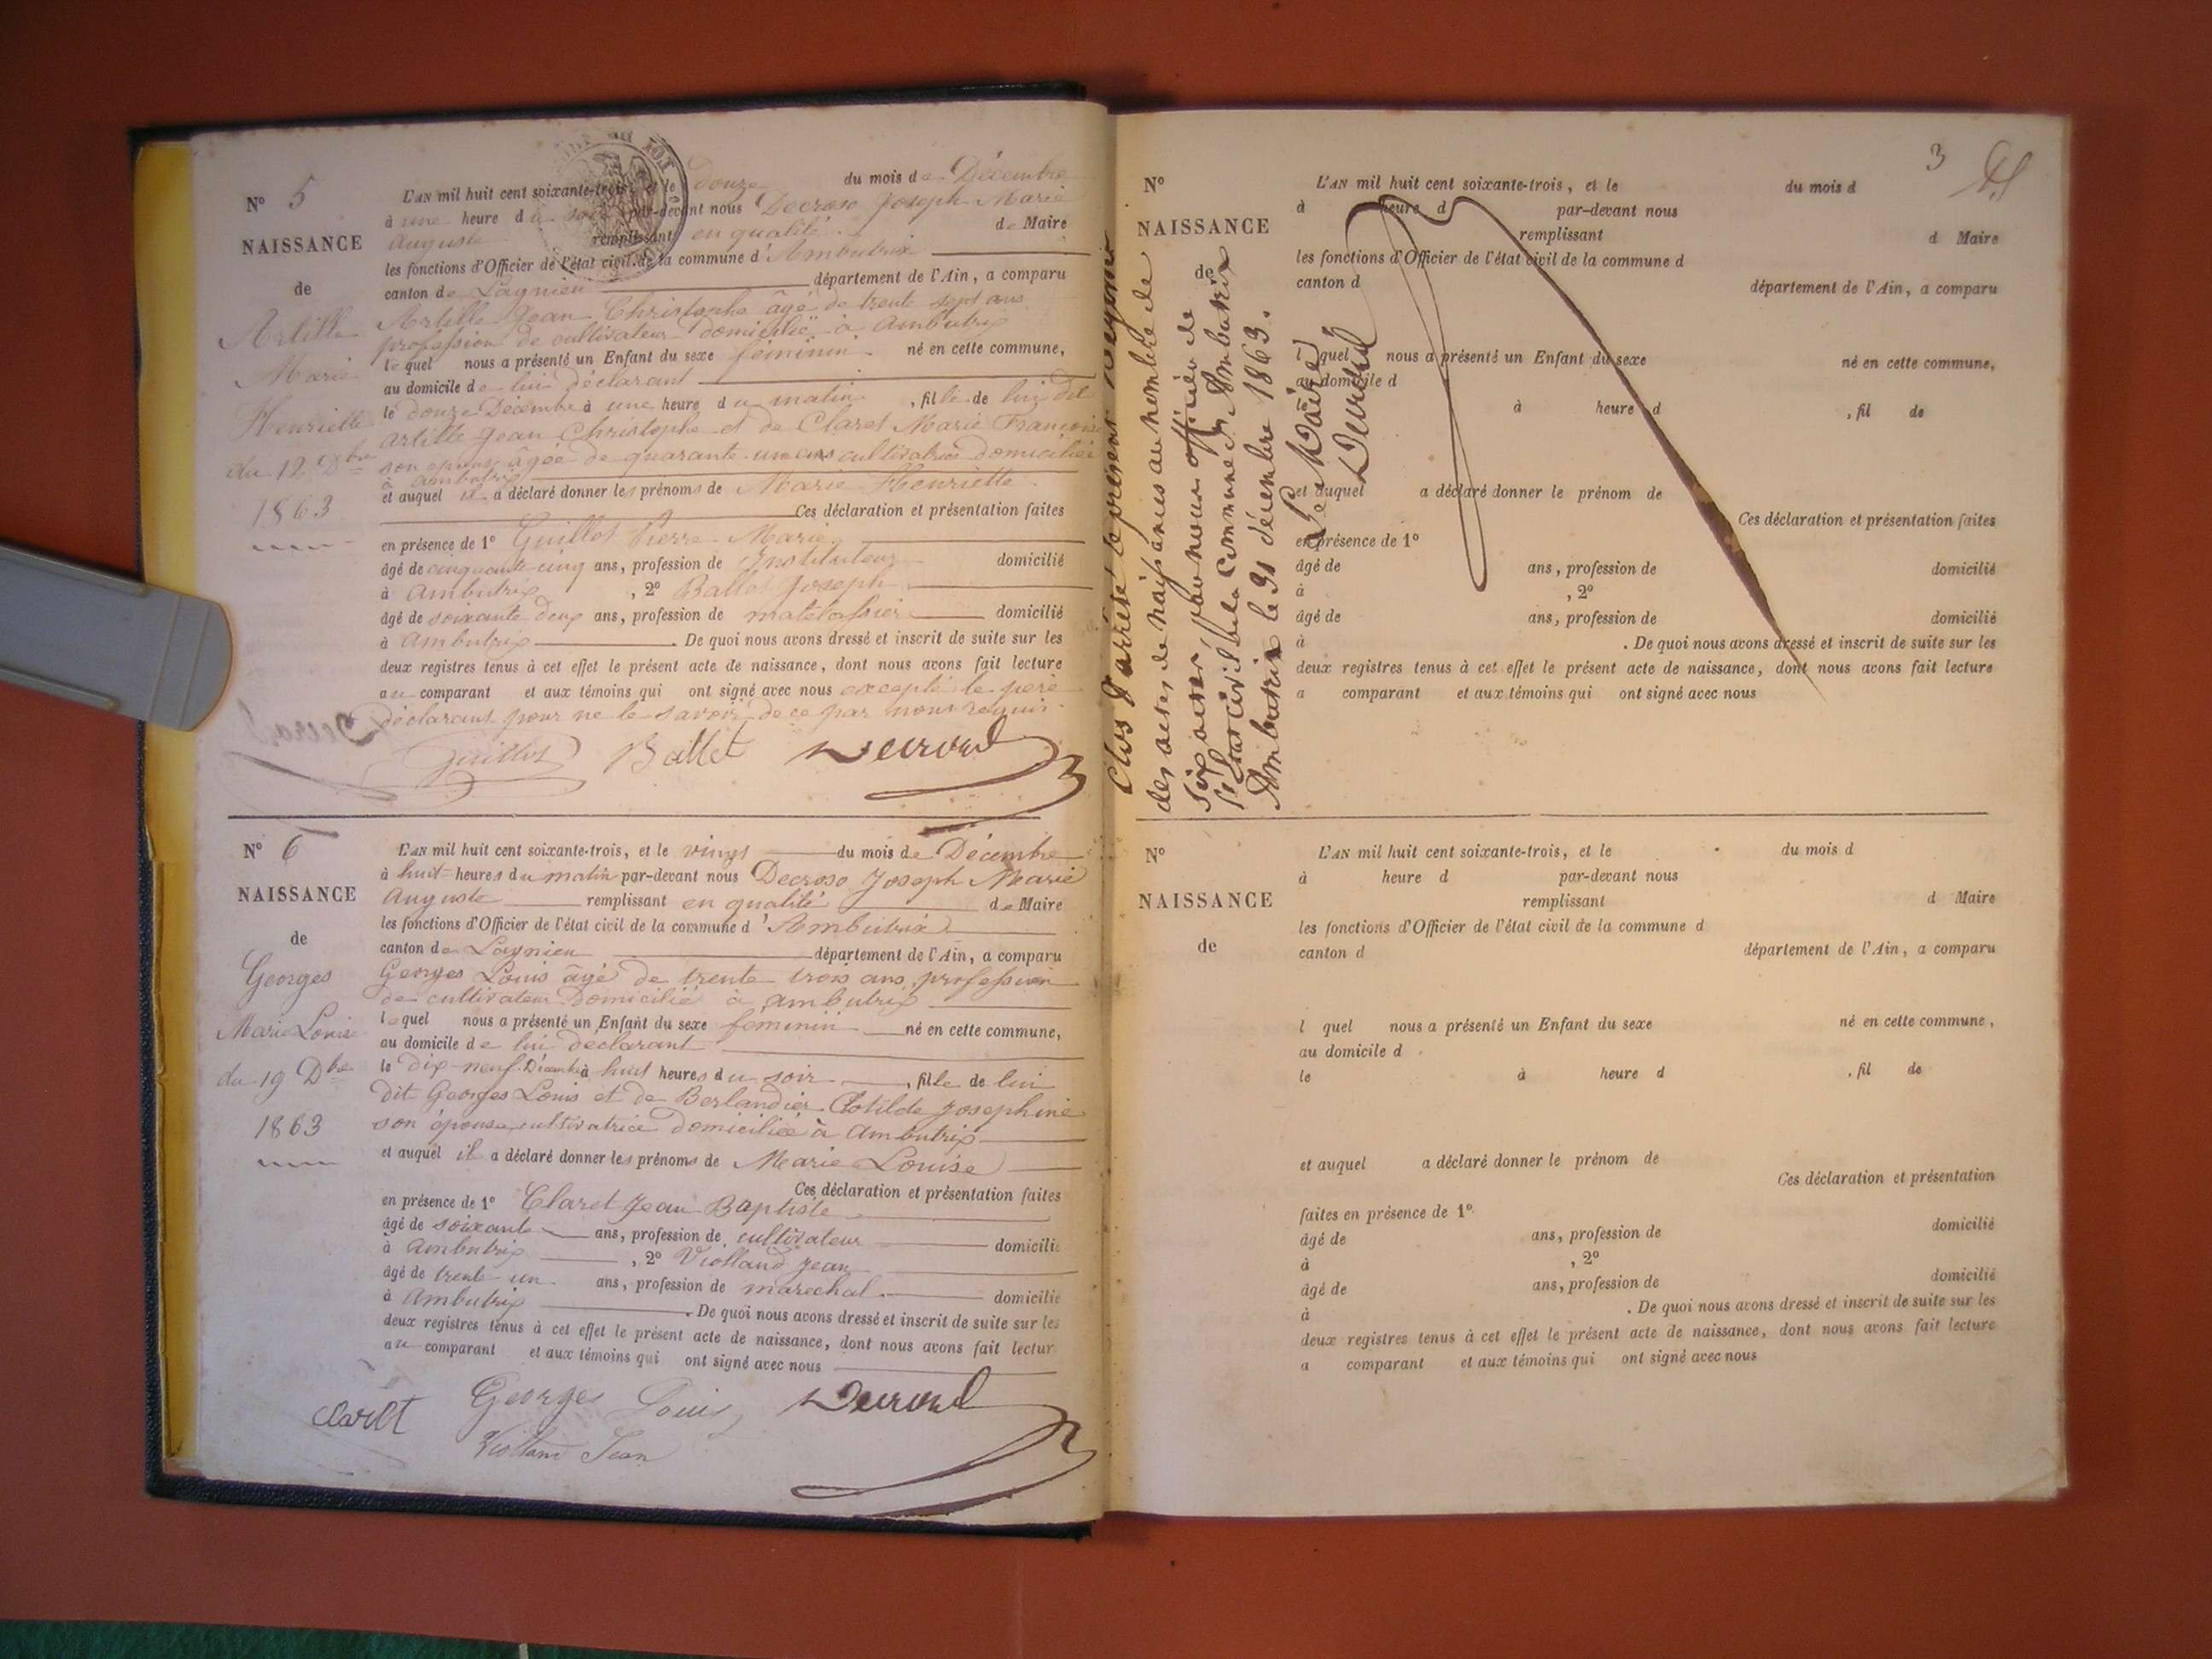 N° 5
NAISSANCE
de
Artille
Marie
Henriette
du 12 Dbre
1863
L'AN mil huit cent soixante-trois, et le douze du mois de Décembre
à une heure du soir par-devant nous Decroso Joseph Marie
Auguste remplissant en qualité de Maire
les fonctions d'Officier de l'état civil de la commune d'Ambutrix
canton de Lagnieu département de l'Ain, a comparu
Artille Jean Christophe âgé de trente sept ans
profession de cultivateur domicilié à Ambutrix
lequel nous a présenté un Enfant du sexe féminin né en cette commune,
au domicile de lui déclarant
le douze Décembre à une heure du matin, fille de lui dit
Artille Jean Christophe et de Claret Marie Françoise
son épouse âgée de quarante un ans cultivatrice domiciliée
à Ambutrix
et auquel il a déclaré donner les prénoms de Marie Henriette
Ces déclaration et présentation faites
en présence de 1° Guillot Pierre Marie
âgé de cinquante cinq ans, profession de Instituteur domicilié
à Ambutrix, 2° Ballet Joseph
âgé de soixante deux ans, profession de matelassier domicilié
à Ambutrix. De quoi nous avons dressé et inscrit de suite sur les
deux registres tenus à cet effet le présent acte de naissance, dont nous avons fait lecture
au comparant et aux témoins qui ont signé avec nous excepté le père
déclarant pour ne le savoir de ce par nous requis
Guillot Ballet Decroso
N° 6
NAISSANCE
de
Georges
Marie Louise
du 19 Dbre
1863
L'AN mil huit cent soixante-trois, et le vingt du mois de Décembre
à huit heures du matin par-devant nous Decroso Joseph Marie
Auguste remplissant en qualité de Maire
les fonctions d'Officier de l'état civil de la commune d'Ambutrix
canton de Lagnieu département de l'Ain, a comparu
Georges Louis âgé de trente trois ans, profession
de cultivateur domicilié à Ambutrix
lequel nous a présenté un Enfant du sexe féminin né en cette commune,
au domicile de lui déclarant
le dix-neuf Décembre à huit heures du soir, fille de lui
dit Georges Louis et de Berlandier Clotilde Josephine
son épouse cultivatrice domiciliée à Ambutrix
et auquel il a déclaré donner les prénoms de Marie Louise
Ces déclaration et présentation faites
en présence de 1° Claret Jean Baptiste
âgé de soixante ans, profession de cultivateur domicilié
à Ambutrix, 2° Violland Jean
âgé de trente un ans, profession de marechal domicilié
à Ambutrix. De quoi nous avons dressé et inscrit de suite sur les
deux registres tenus à cet effet le présent acte de naissance, dont nous avons fait lectur
au comparant et aux témoins qui ont signé avec nous
Claret Georges Louis Decroso
Violland Jean
3
Clos & arrêté le présent
des actes de naissances au nombre de
six actes par nous officier de
l'état civil de la commune d'Ambutrix
Ambutrix le 31 décembre 1863.
Le Maire
Decroso
N°
NAISSANCE
de
L'AN mil huit cent soixante-trois, et le du mois d
à heure d par-devant nous
remplissant d Maire
les fonctions d'Officier de l'état civil de la commune d
canton d département de l'Ain, a comparu
l quel nous a présenté un Enfant du sexe né en cette commune,
au domicile d
le à heure d , fil de
et auquel a déclaré donner le prénom de
Ces déclaration et présentation faites
en présence de 1°
âgé de ans, profession de domicilié
à , 2°
âgé de ans, profession de domicilié
à . De quoi nous avons dressé et inscrit de suite sur les
deux registres tenus à cet effet le présent acte de naissance, dont nous avons fait lecture
a comparant et aux témoins qui ont signé avec nous
N°
NAISSANCE
de
L'AN mil huit cent soixante-trois, et le du mois d
à heure d par-devant nous
remplissant d Maire
les fonctions d'Officier de l'état civil de la commune d
canton d département de l'Ain, a comparu
l quel nous a présenté un Enfant du sexe né en cette commune,
au domicile d
le à heure d , fil de
et auquel a déclaré donner le prénom de
Ces déclaration et présentation
faites en présence de 1°
âgé de ans, profession de domicilié
à , 2°
âgé de ans, profession de domicilié
à . De quoi nous avons dressé et inscrit de suite sur les
deux registres tenus à cet effet le présent acte de naissance, dont nous avons fait lecture
a comparant et aux témoins qui ont signé avec nous